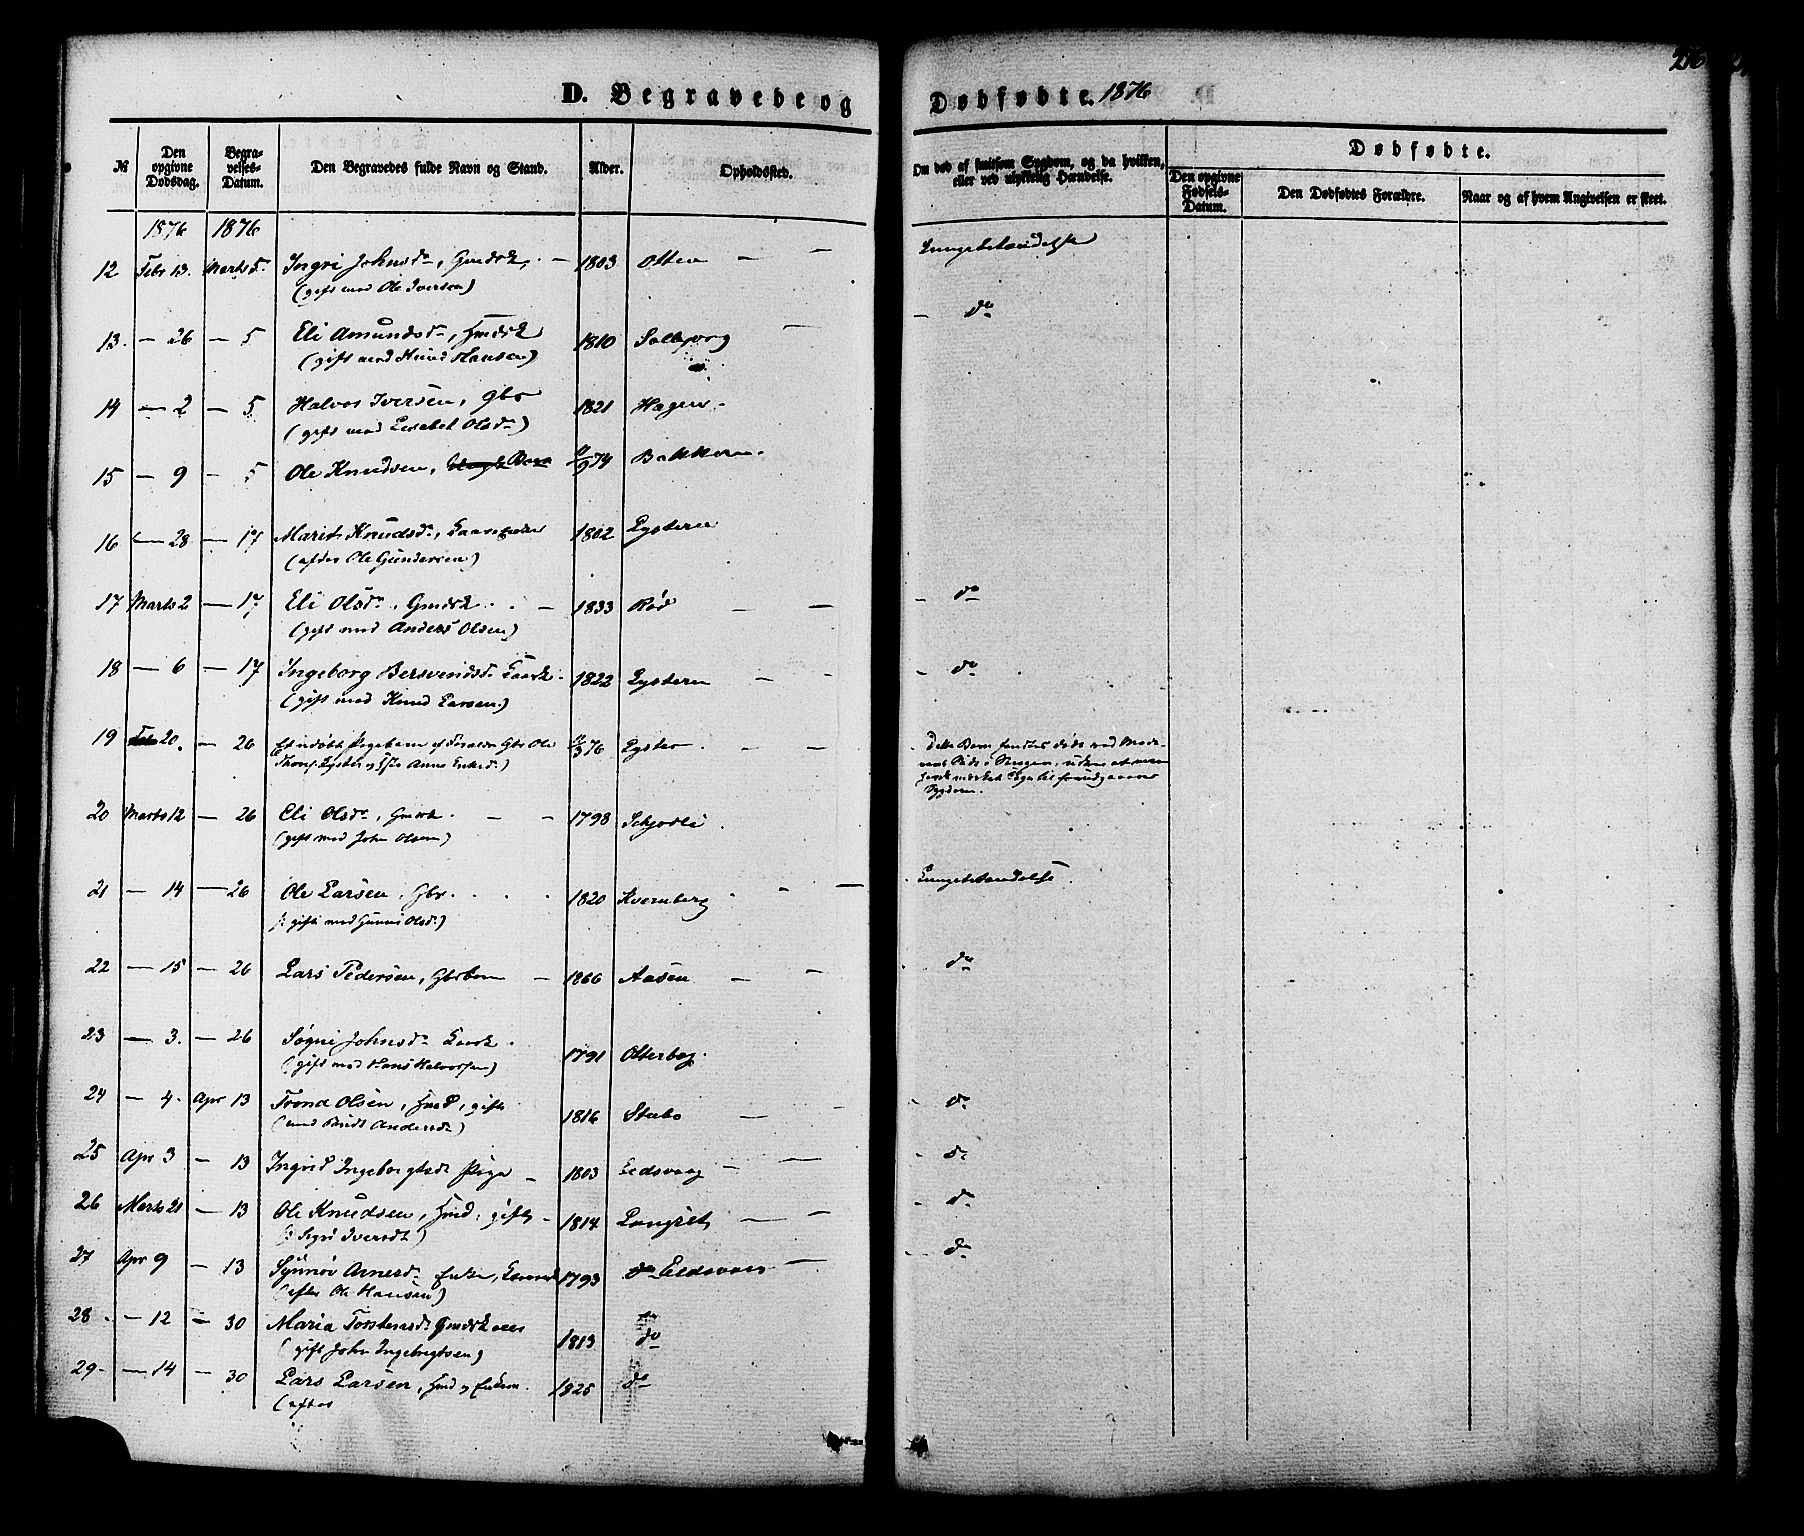 216
D. Begravede og Dødfødte. 1876
№
Den opgivne Dødsdag.
Begravelses-Datum.
Den Begravedes fulde Navn og Stand.
Alder.
Opholdssted.
Om død af smitsom Sygdom, og da hvilken, eller ved ulykkelig Hændelse.
Dødfødte.
Den opgivne Fødsels-Datum.
Den Dødfødtes Forældre.
Naar og af hvem Angivelsen er skeet.
1876 1876
12 Febr 13. Marts 5. Ingri Johnsdr, Gmdsk. — 1803 Otten — — Lungebetændelse
(gift med Ole Iversen)
13. — 26 — 5 Eli Amundsdr, Hmdsk 1810 Solbjørg — — do
(gift med Knud Hansen)
14 — 2 — 5 Halvor Iversen, Gbr 1821 Hagen.
(gift med Lisabet Olsdr)
15 — 9 — 5 Ole Knudsen, Barn 11/9 74 Bakken.
16 — 28 — 17 Marit Knudsdr, 1802 Lysteren
(efter Ole Gundersen)
17 Marts 2 — 17 Eli Olsdr, Gmdsk. — 1833 Rød — — - do
(gift med Anders Olsen)
18 — 6 — 17 Ingeborg Bersvendsdr 1822 Lysteren — - do
(gift med Knud Larsen.)
19 Feb 20. — 26 Et udøbt Pigebarn af Forældre Gbr Ole 11/3 76 Lyster. — — Dette Barn fandtes død ved Mode-
Thors. Lyster og Anne rens Side i Sengen, uden at man
havde mærket Tegn til foregaaende
Sygdom.
20 Marts 12 — 26 Eli Olsdr, Gmdsk. — — 1798 Schjødli
(gift med John Olsen)
21 — 14 — 26 Ole Larsen, Gbr. 1820 Kvernberg — — Lungebetændelse
(: gift med Gunni Olsdr)
22 — 15 — 26 Lars Pedersen, Gbrbarn — 1866 Aasen — — do
23 — 3. — 26 Søgni Johnsdr 1791 Otterbog.
(gift med Hans Halvorsen)
24 — 4. Apr 13 Trond Olsen, Hmd, gift 1816 Stubo — - do
(med Beret Andersdr)
25 Apr 3 — 13 Ingrid Ingeborgtsdr Pige — 1803 Eidsvaag — — - do
26 Marts 21 — 13 Ole Knudsen, Hmd, gift — 1814. Langset — — - do
(: Sigri Iversdt)
27 Apr 9 — 13 Synnøv Arnesdr Enke, 1793 do Eidsvaag — - do
(efter Ole Hansen)
28. — 12 — 30 Maria Torstensdr 1813 do
(gift John Ingebrigtsen)
29 — 14 — 30 Lars Larsen, Hmd og Enkem. 1825 do
(efter